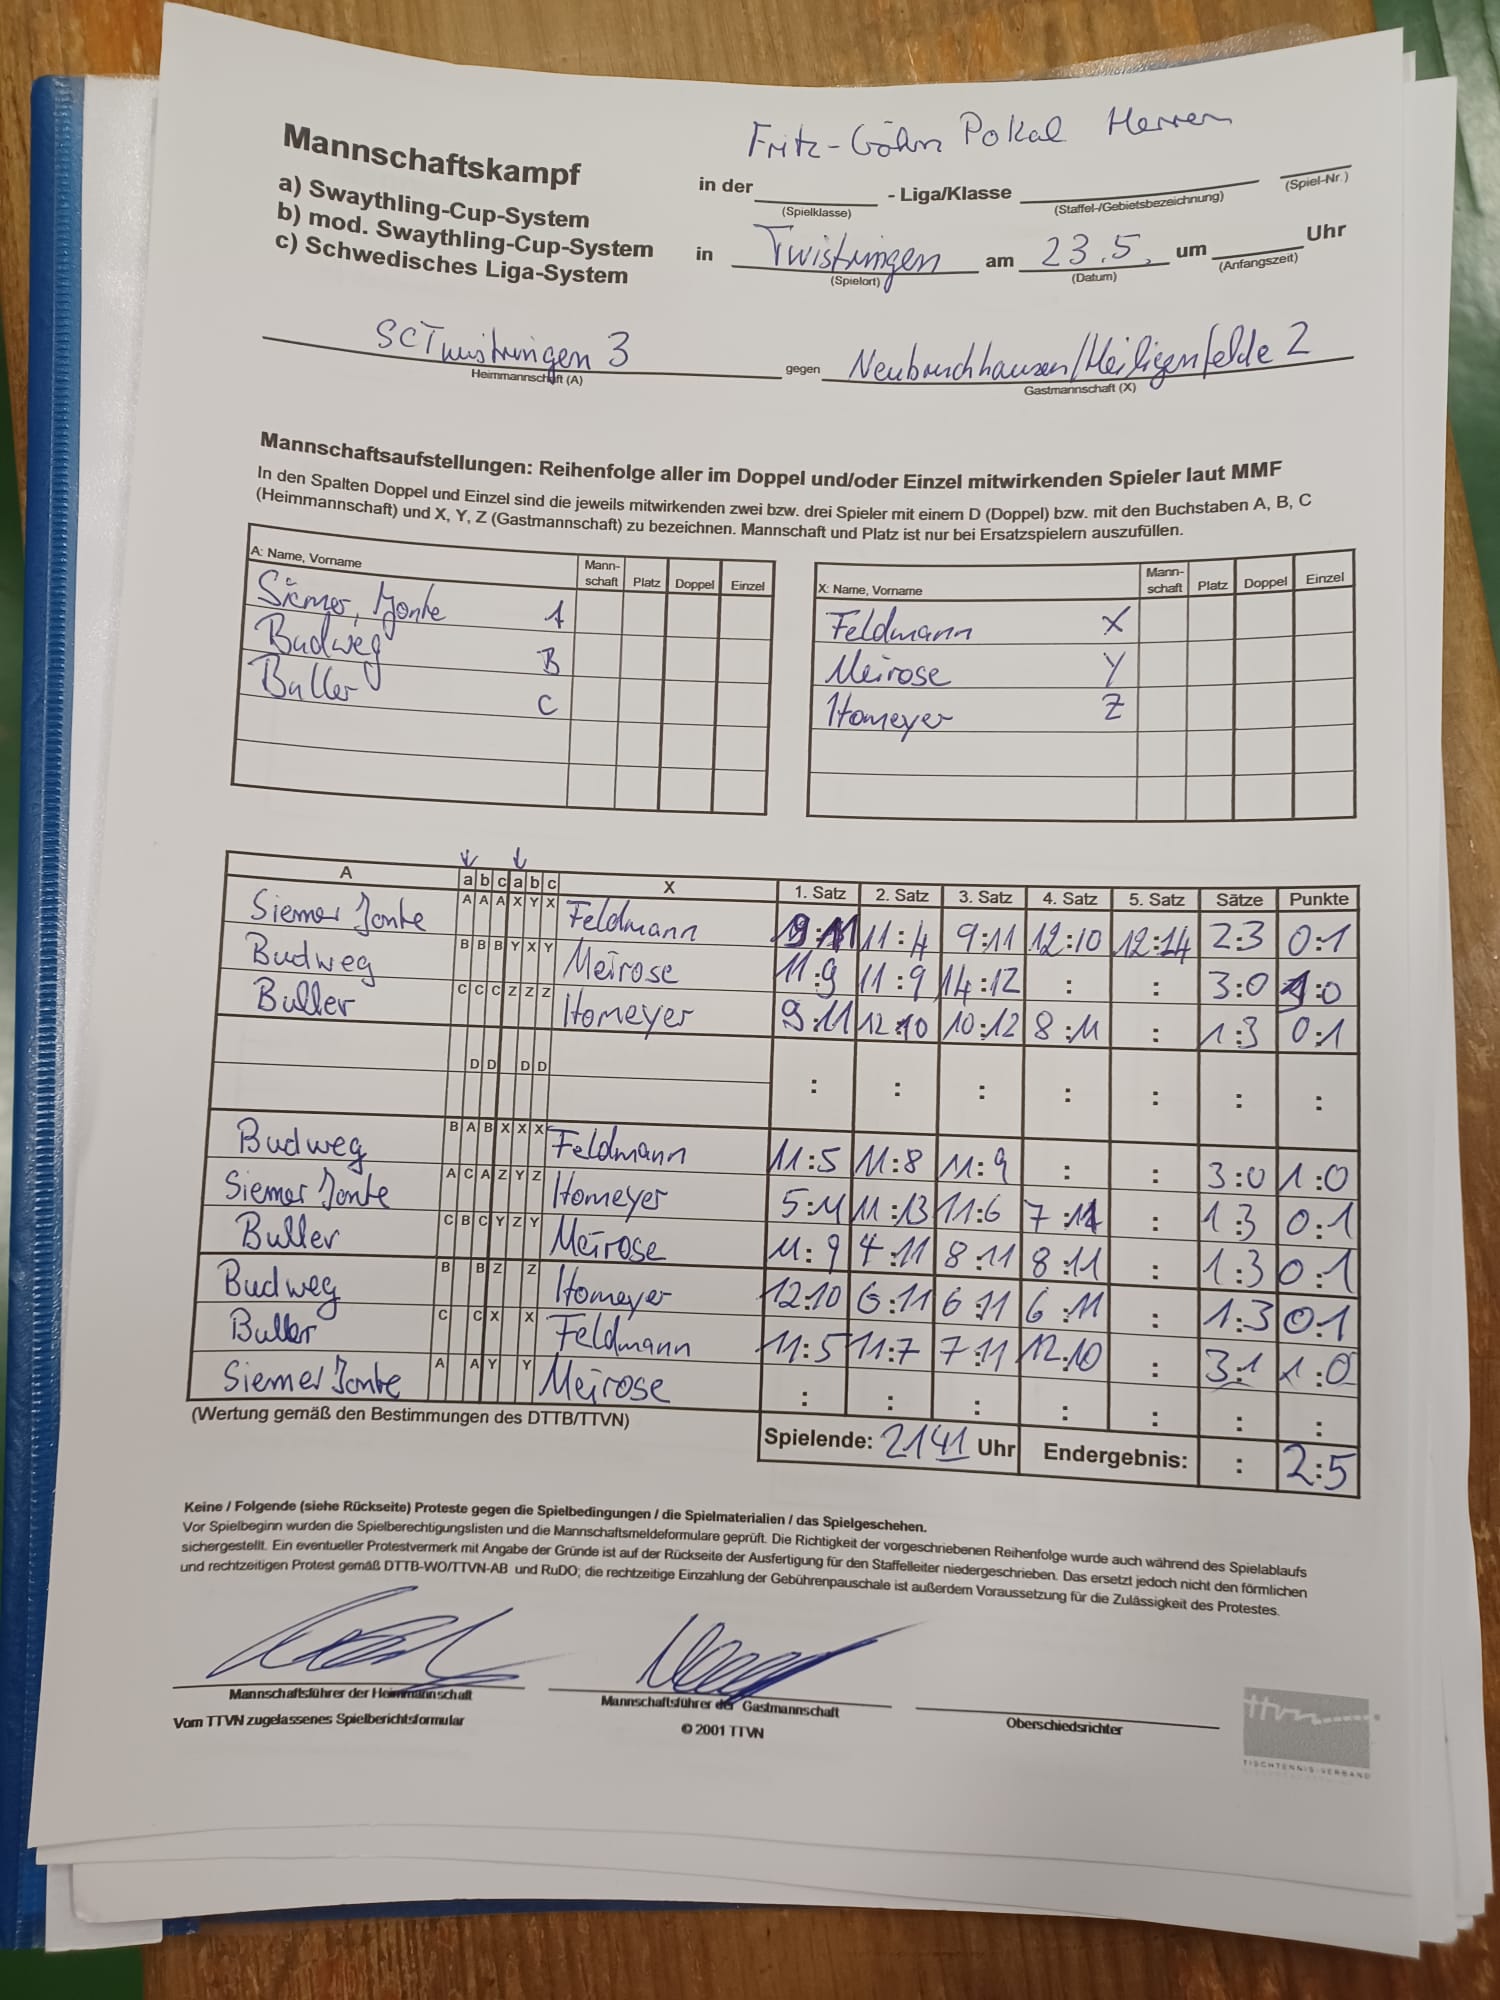 Fritz-Göhn Pokal Herren
Mannschaftskampf
a) Swaythling-Cup-System
b) mod. Swaythling-Cup-System
c) Schwedisches Liga-System
in der - Liga/Klasse
(Spielklasse) (Staffel-/Gebietsbezeichnung) (Spiel-Nr.)
in Twistringen am 23.5. um Uhr
(Spielort) (Datum) (Anfangszeit)
SC Twistringen 3 gegen Neubruchhausen/Heiligenfelde 2
Heimmannschaft (A) Gastmannschaft (X)
Mannschaftsaufstellungen: Reihenfolge aller im Doppel und/oder Einzel mitwirkenden Spieler laut MMF
In den Spalten Doppel und Einzel sind die jeweils mitwirkenden zwei bzw. drei Spieler mit einem D (Doppel) bzw. mit den Buchstaben A, B, C
(Heimmannschaft) und X, Y, Z (Gastmannschaft) zu bezeichnen. Mannschaft und Platz ist nur bei Ersatzspielern auszufüllen.
A: Name, Vorname Mann-schaft Platz Doppel Einzel
Siemer, Jonte A
Budweg B
Buller C
X: Name, Vorname Mann-schaft Platz Doppel Einzel
Feldmann X
Meirose Y
Homeyer Z
A a b c a b c X 1. Satz 2. Satz 3. Satz 4. Satz 5. Satz Sätze Punkte
Siemer Jonte A A A X Y X Feldmann 9:11 11:4 9:11 12:10 12:14 2:3 0:1
Budweg B B B Y X Y Meirose 11:9 11:9 14:12 : : 3:0 1:0
Buller C C C Z Z Z Homeyer 9:11 12:10 10:12 8:11 : 1:3 0:1
D D D D : : : : : : :
Budweg B A B X X X Feldmann 11:5 11:8 11:9 : : 3:0 1:0
Siemer Jonte A C A Z Y Z Homeyer 5:11 11:13 11:6 7:11 : 1:3 0:1
Buller C B C Y Z Y Meirose 11:9 4:11 8:11 8:11 : 1:3 0:1
Budweg B B Z Z Homeyer 12:10 6:11 6:11 6:11 : 1:3 0:1
Buller C C X X Feldmann 11:5 11:7 7:11 12:10 : 3:1 1:0
Siemer Jonte A A Y Y Meirose : : : : : : :
(Wertung gemäß den Bestimmungen des DTTB/TTVN) Spielende: 2141 Uhr Endergebnis: : 2:5
Keine / Folgende (siehe Rückseite) Proteste gegen die Spielbedingungen / die Spielmaterialien / das Spielgeschehen.
Vor Spielbeginn wurden die Spielberechtigungslisten und die Mannschaftsmeldeformulare geprüft. Die Richtigkeit der vorgeschriebenen Reihenfolge wurde auch während des Spielablaufs
sichergestellt. Ein eventueller Protestvermerk mit Angabe der Gründe ist auf der Rückseite der Ausfertigung für den Staffelleiter niedergeschrieben. Das ersetzt jedoch nicht den förmlichen
und rechtzeitigen Protest gemäß DTTB-WO/TTVN-AB und RuDO; die rechtzeitige Einzahlung der Gebührenpauschale ist außerdem Voraussetzung für die Zulässigkeit des Protestes.
Mannschaftsführer der Heimmannschaft Mannschaftsführer der Gastmannschaft Oberschiedsrichter
Vom TTVN zugelassenes Spielberichtsformular © 2001 TTVN
ttvn
TISCHTENNIS-VERBAND